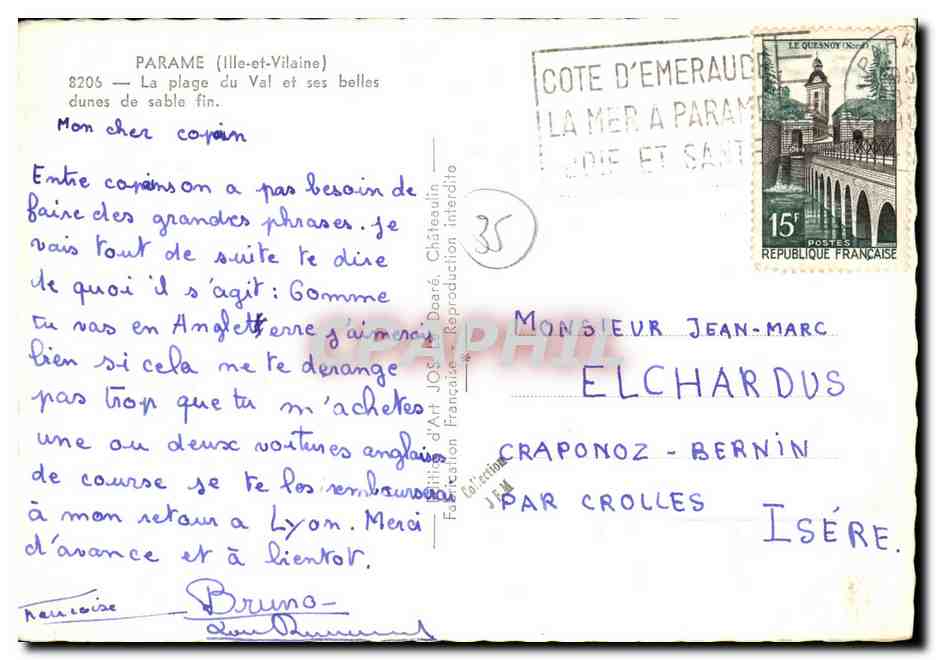 PARAME (Ille-et-Vilaine)
8206 — La plage du Val et ses belles
dunes de sable fin.
Mon cher copain
Entre copins on a pas besoin de
faire des grandes phrases. Je
vais tout de suite te dire
de quoi il s'agit : Comme
tu vas en Angletterre j'aimerais
bien si cela ne te derange
pas trop que tu m'achetes
une ou deux voitures anglaises
de course je te les rembourserai
à mon retour a Lyon. Merci
d'avance et à bientot.
Francoise
Bruno
Editions d'Art JOS Le Doaré, Châteaulin
Fabrication Française - Reproduction interdite
35
COTE D'EMERAUDE
LA MER A PARAME
JOIE ET SANTE
LE QUESNOY (Nord)
15F
POSTES
REPUBLIQUE FRANÇAISE
CPAPHIL
MONSIEUR JEAN-MARC
ELCHARDUS
CRAPONOZ - BERNIN
PAR CROLLES
ISÉRE.
Collection
J.F.M